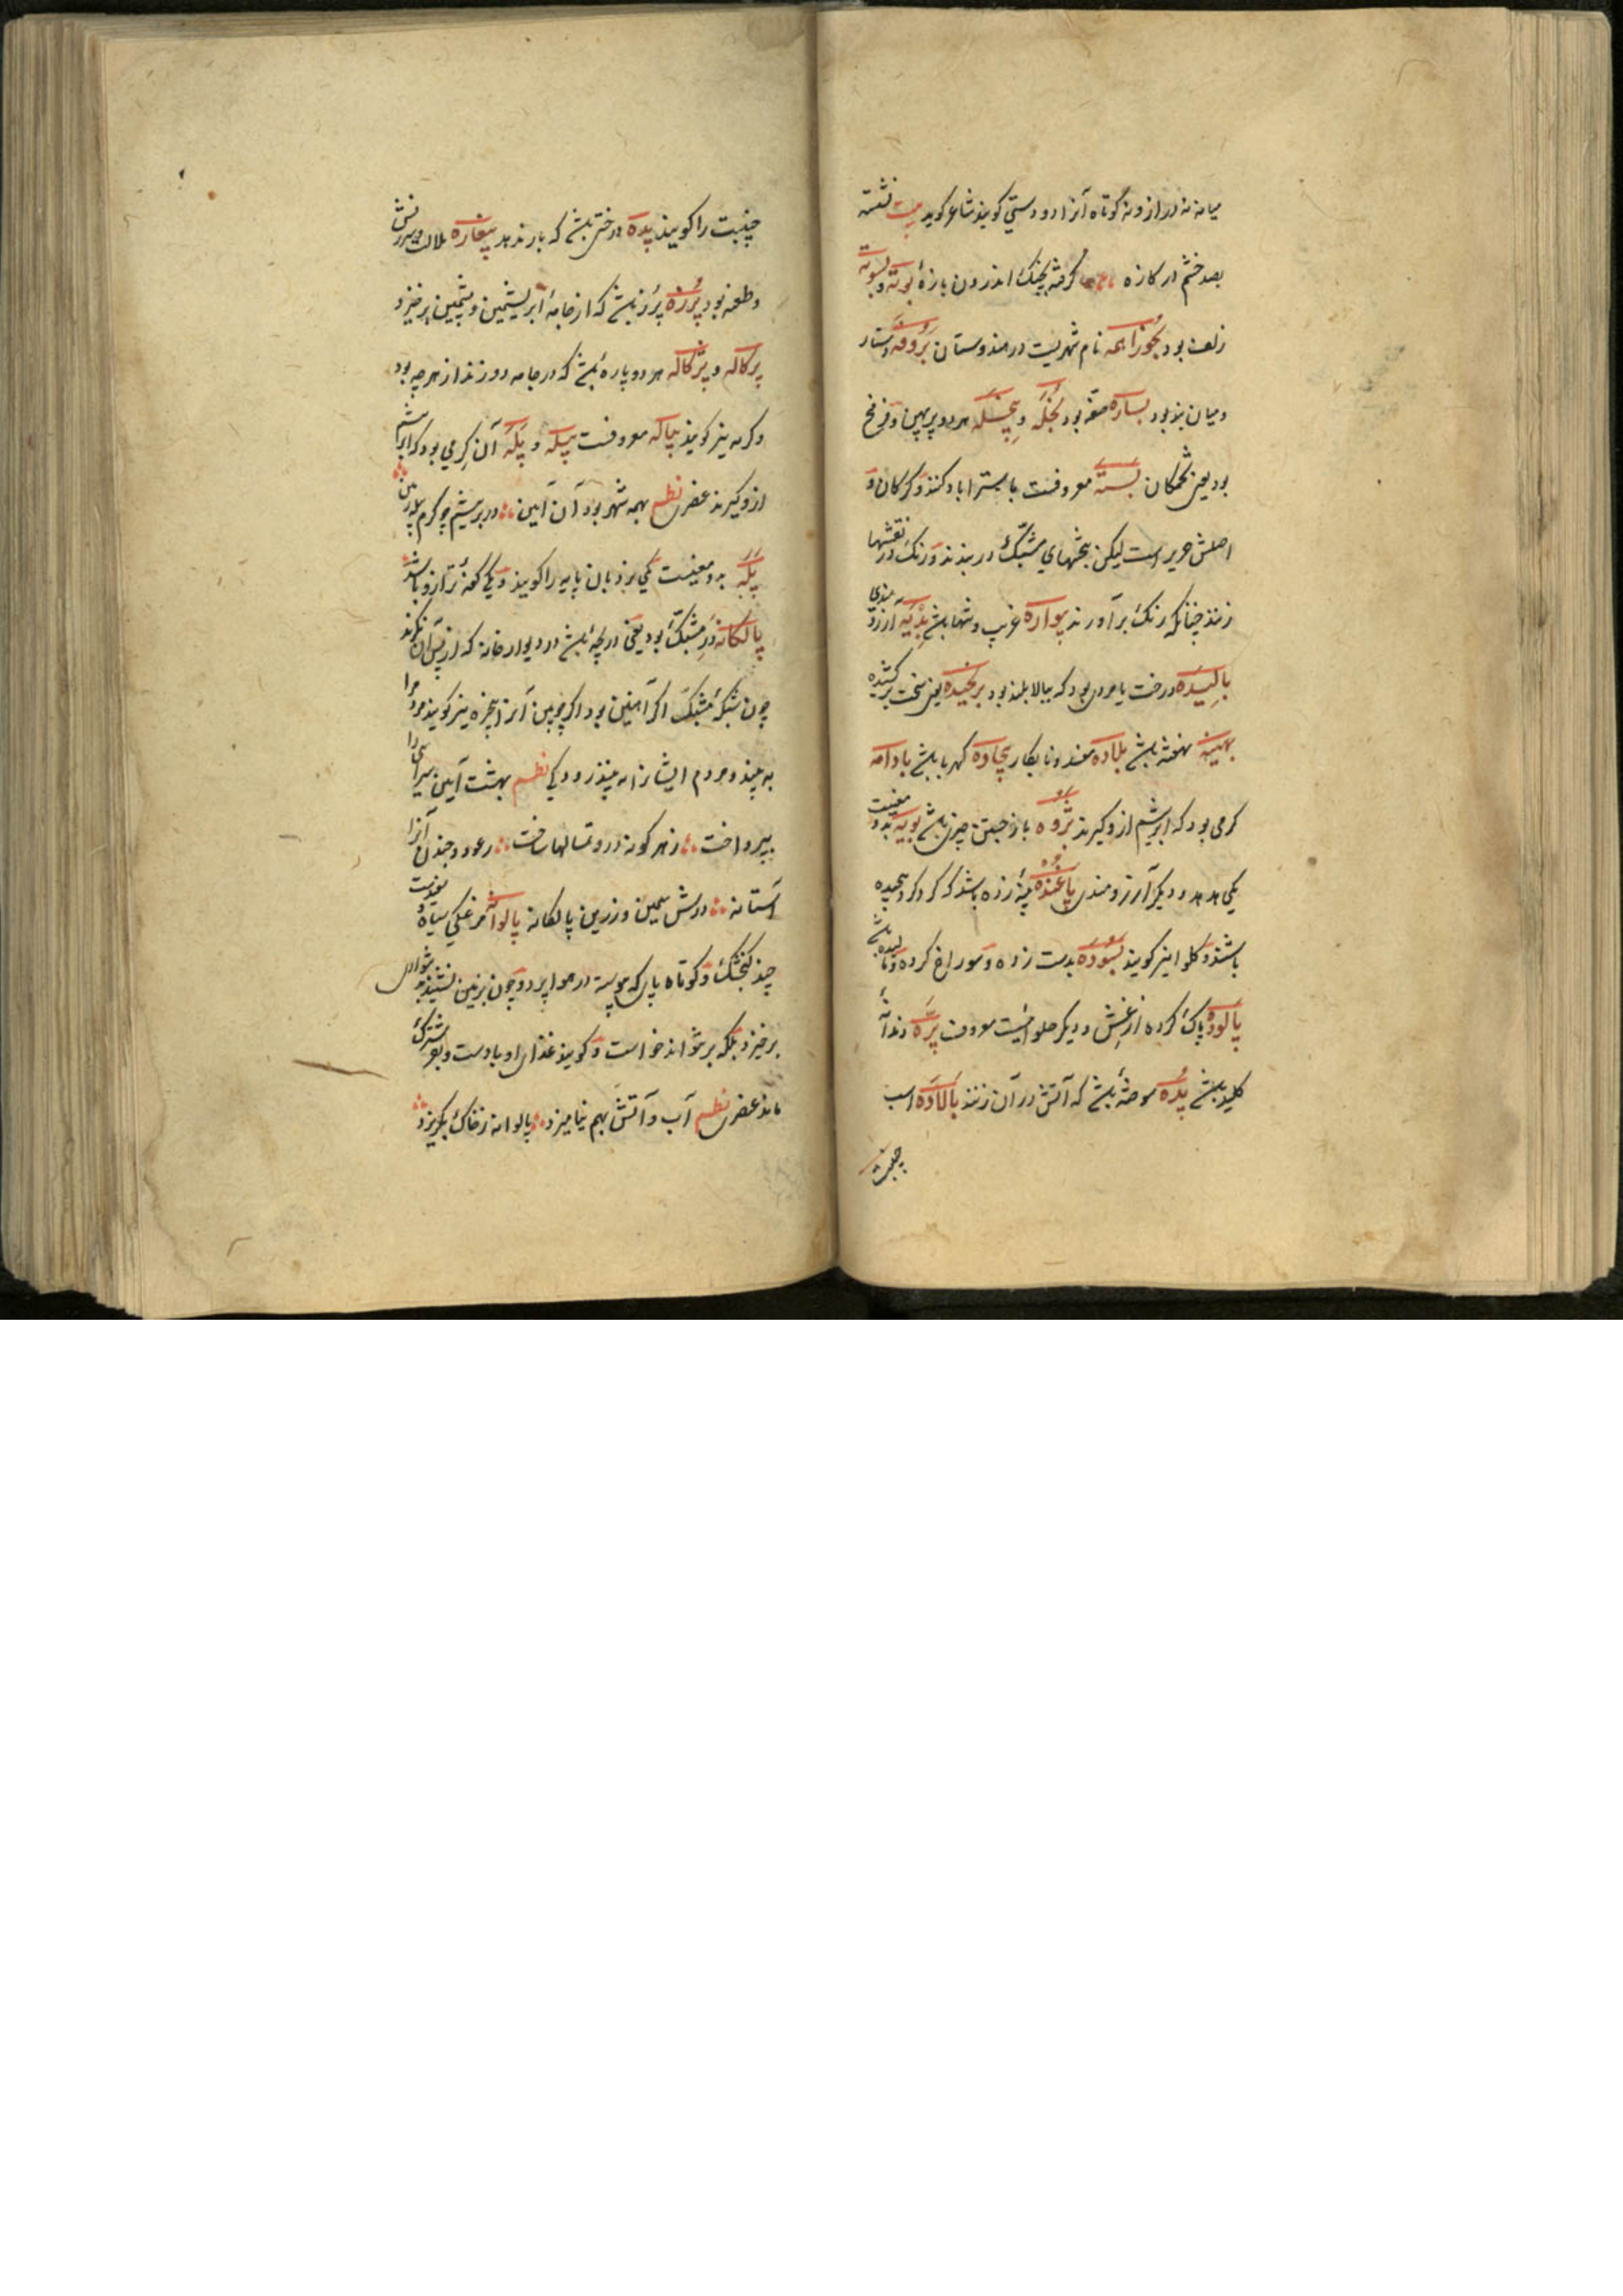 میانه نه دراز و نه کوتاه آنرا دو دستی کویند شاعر کوید بیت نشسته
بصد خشم در کازه کرفته بچنک اندرون بازهٔ بوته و بسوته
زلف بود بجوزاهمه نام شهریست در هندوستان بروفه دستار
و میان بند بود بساره صفه بود بخله و بیخیله هر دو پرپهن و فرفخ
بود یعنی تخمکان بسته معروفست باستراباد کنند و کرکان و
اصلش حریر است لیکن بخشهای مشبک در بندند و رنک در نقشها
زنند چنانکه رنک برآورند پواره غریب و تنها باشد بدیه آرزو مندی
بالیده درخت یا مردی بود که ببالا بلند بود برنجیده یعنی سخت برکشیده
بهینه هفته باشد بلاده مفسد و نابکار بیجاده کهربا باشد بادامه
کرمی بود که ابریشم ازو کیرند بژوه باز جستن چیزی باشد بویه بدو معنیست
یکی هدهد و دیکر آرزومندی پاغنده پنبه زده باشد که کرد کرده پیچیده
باشند و کلوا نیز کویند بسوده بدست زده و سوراخ کرده و مالیده باشد
پالوده پاک کرده از غش و دیکر حلوائیست معروف پره دندانه
کلید باشد پده سوخته باشد که آتش در آن زنند بالاده اسب
جنیبت
جنیبت را کویند پده درختی باشد که بار ندهد بیغاره ملالت و سرزنش
و طعنه بود پرزه پرز باشد که از جامهٔ ابریشمین و پشمین برخیزد
پرکاله و پژکاله هر دو پارهٔ باشد که در جامه دوزند از هر چه بود
و کربه نیز کویند پیاله معروفست پیله و پله آن کرمی بود که ابریشم
ازو کیرند عنصری نظم بهمه شهر بود آن آیین در بریشم چو کرم پیله زمین
پله بدو معنیست یکی نردبان پایه را کویند و یکی کفهٔ ترازو باشد
پالکانه در مشبک بود یعنی دریچه باشد در دیوار خانه که از پس آن نکرند
چون شبکهٔ مشبک اکر آهنین بود اکر چوبین آنرا پنجره نیز کویند مردم را
به بیند و مردم ایشانرا نه بیند رودکی نظم بهشت آیین سرائی را
بپرداخت ز هر کونه درو تمثالها ساخت ز عود و چندن آنرا
آستانه درش سیمین و زرین پالکانه پالوانه مرغکی سیاه
چند کنجشک و کوتاه پای که پیوسته در هوا پرد و چون بزمین نشیند
برخیزد بلکه برنتواند خواست و کویند غذای او بادست
ماند عنصری نظم آب و آتش بهم نیامیزد پالوانه ز خاک بکریزد